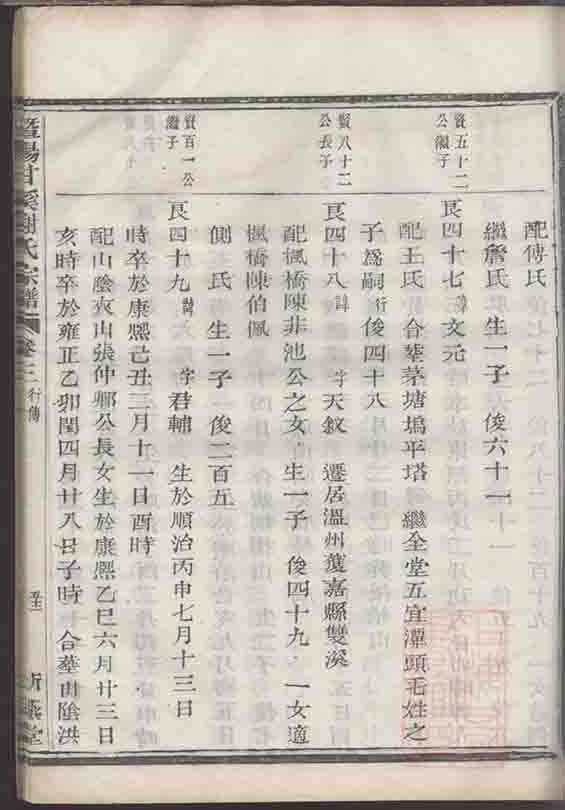 配傅氏
繼詹氏 生一子 俊六十一
賢五十二
公繼子
良四十七 諱 文元
配王氏 合塟茅塘塢平塔 繼仝堂五宜潭頭毛姓之
子爲嗣 行 俊四十八
賢八十二
公長子
良四十八 諱 字 天敘 遷居溫州 嘉縣雙溪
配楓橋陳非池公之女 生一子 俊四十九 一女適
楓橋陳伯佩
側 氏 生一子 俊二百五
賢百一公
繼子
良四十九 諱 字 君輔 生於順治丙申七月十三日
時卒於康熙己丑三月十一日酉時
配山陰夾山張仲卿公長女生於康熙乙巳六月廿三日
亥時卒於雍正乙卯閏四月廿八日子時 合塟山陰洪
暨陽甘溪謝氏宗譜 卷三 行傳